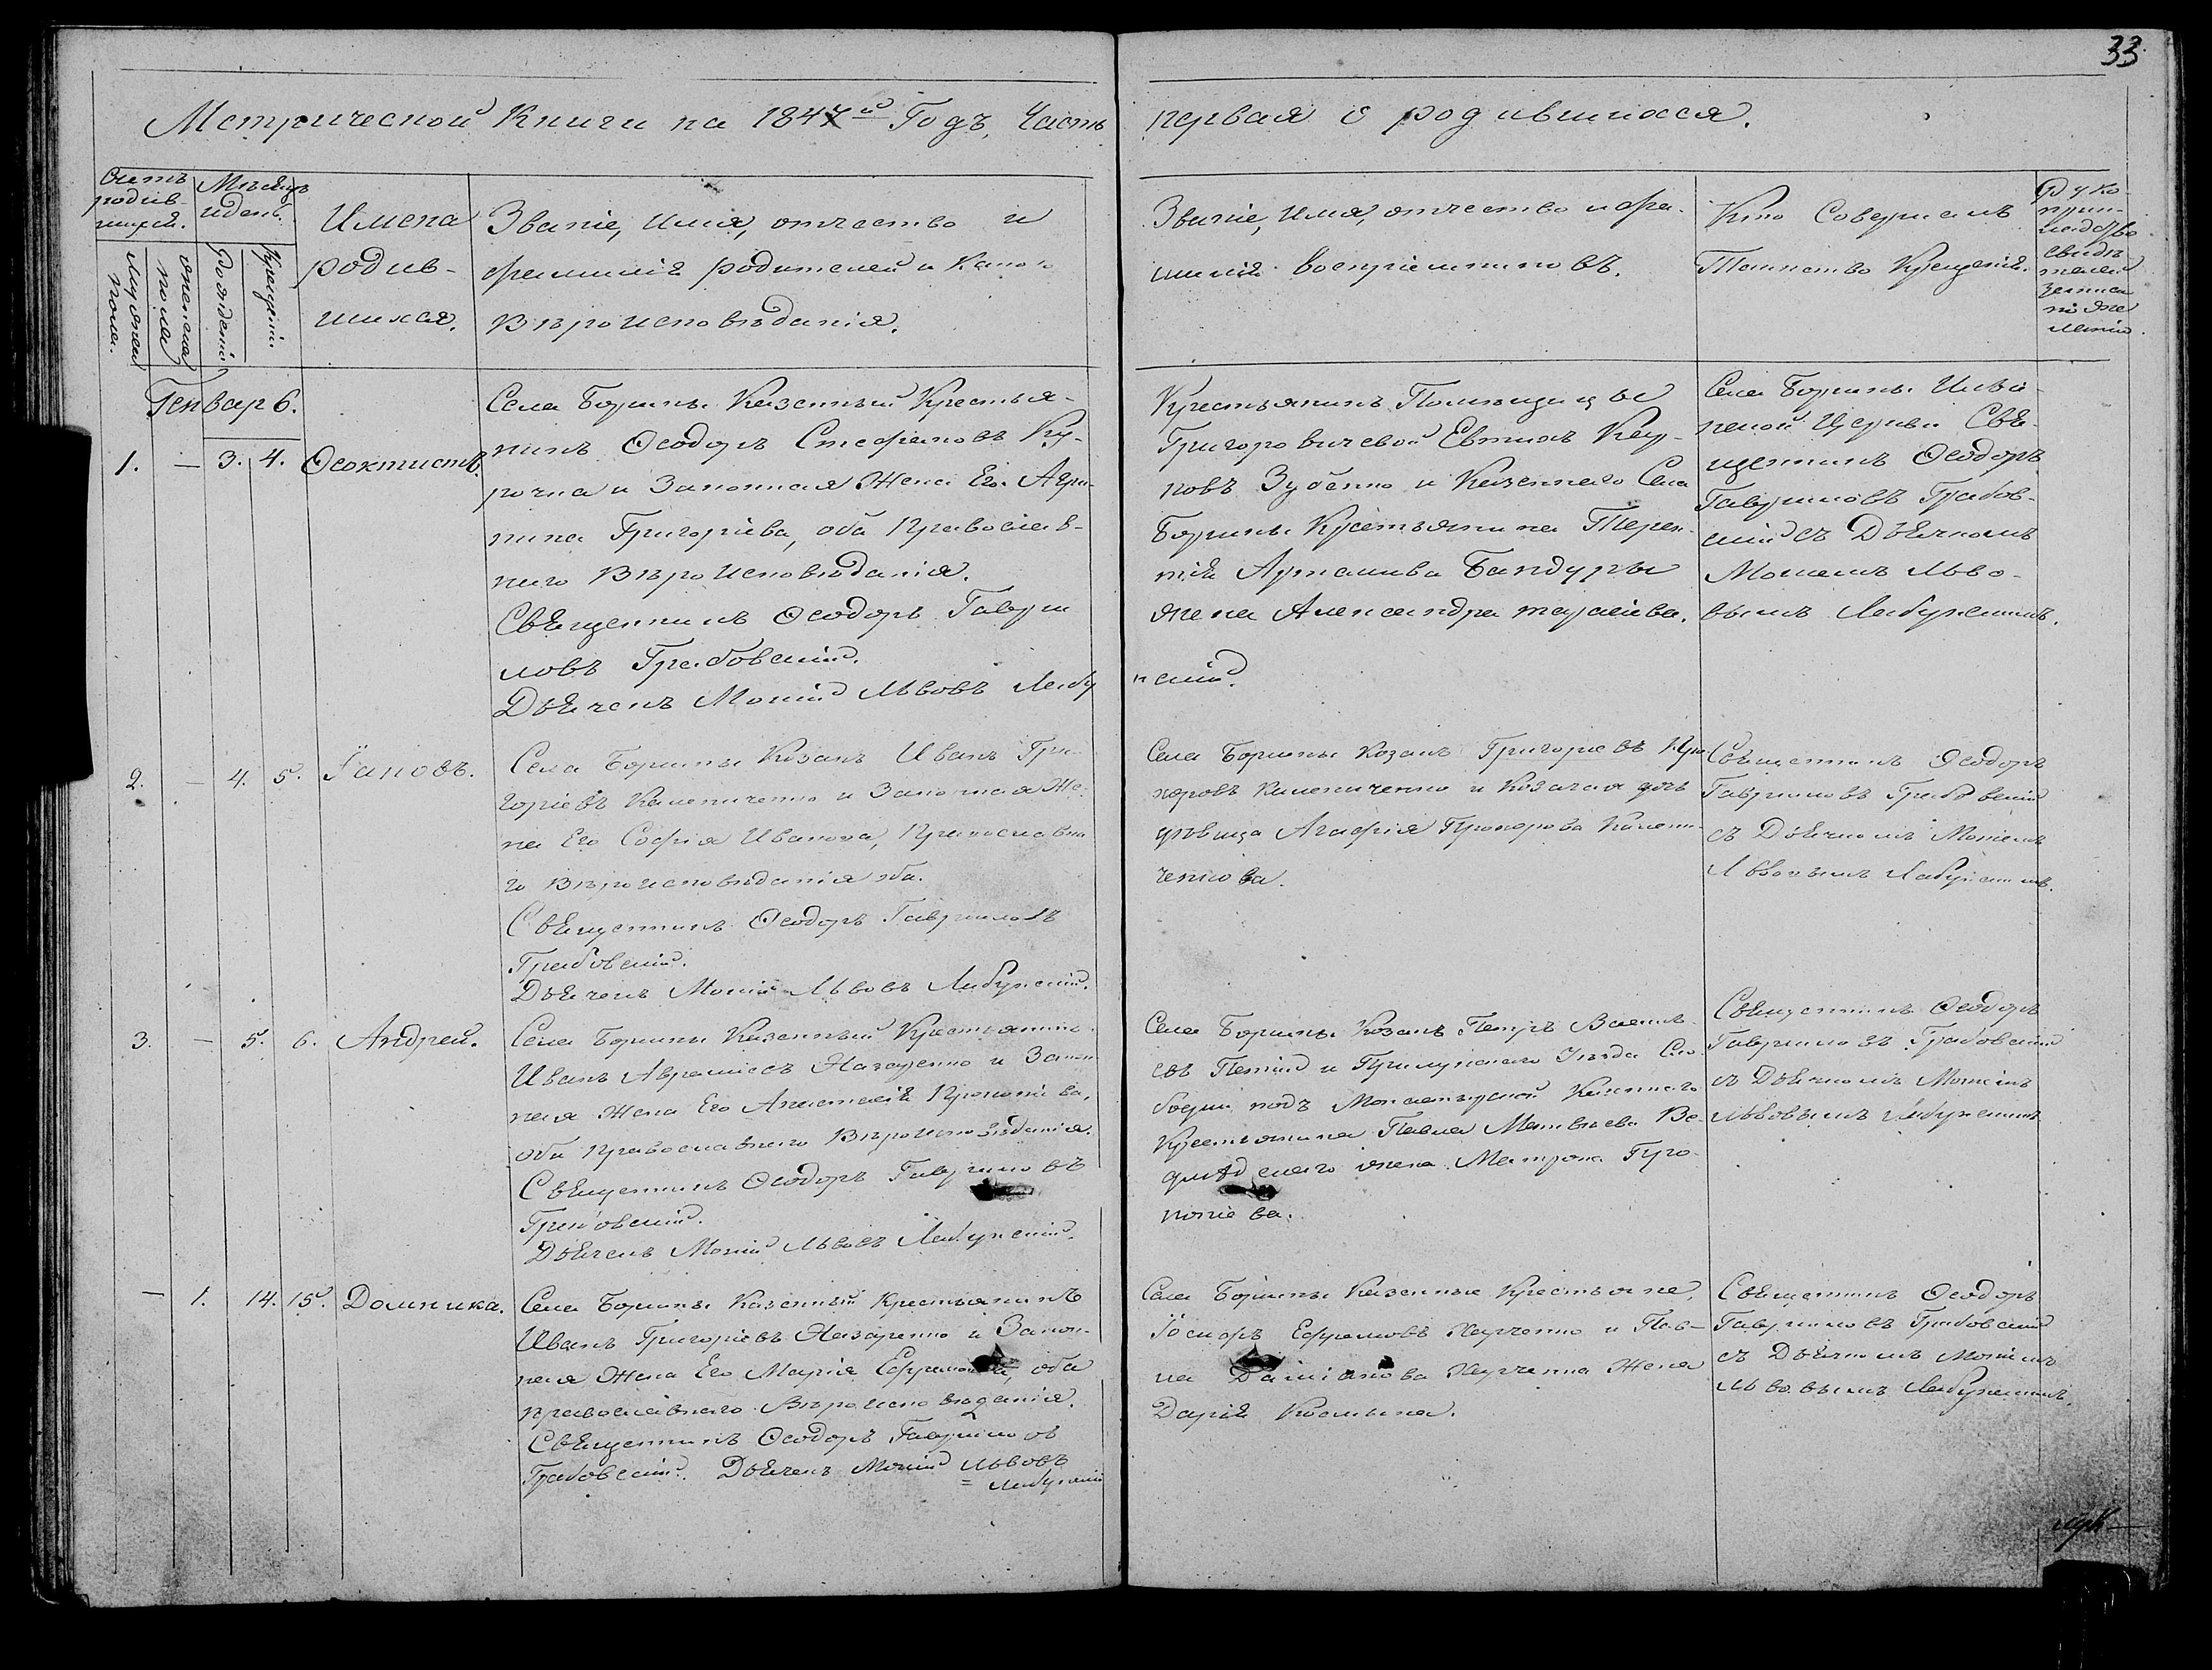 33.
Метрической Книги на 1847й Годъ, Часть первая о родившихся.
Счетъ родив-
шихся.
Мужеска
пола.
Женска
пола
Месяцъ
и день.
Рожденія
Крещенія
Имена
родив-
шихся.
Званіе, имя, отчество и
фамилія родителей и какого
Вѣроисповѣданія.
Званіе, имя, отчество и фа-
милія воспріемниковъ.
Кто Совершалъ
Таинство Крещенія.
Руко-
прик-
ладство
свидѣ-
телей
записи
по же
ланію.
Генварь.
1. — 3. 4. Ѳеоктистъ.
Села Боршны Казенный Крестья-
нинъ Ѳеодоръ Стефановъ Ку-
рочка и Законная Жена Его Агри-
пина Григоріева, оба Православ-
наго Вѣроисповѣданія.
Священникъ Ѳеодоръ Гаври
ловъ Грабовскій.
Дьячекъ Моисій Львовъ Лабу
нскій.
Крестьянинъ Помѣщицы
Григоровичевой Евтихъ Кар-
повъ Зубенко и Казеннаго Села
Боршны Крестьянина Терен-
тія Артамива Бандуры
жена Александра Тарасіева.
Села Боршны Ильи-
нской Церкви Свя-
щенникъ Ѳеодоръ
Гавриловъ Грабов-
скій съ Дьячкомъ
Моисеемъ Льво-
вымъ Лабунскимъ.
2. — 4. 5. Іаковъ.
Села Боршны Козакъ Иванъ Гри-
горіевъ Калениченко и Законная Же-
на Его Софія Иванова, Православна
го Вѣроисповѣданія оба.
Священникъ Ѳеодоръ Гавриловъ
Грабовскій.
Дьячекъ Моисій Львовъ Лабунскій.
Села Боршны Козакъ Григоріевъ Про
коровъ Калениченко и Козачая дочь
дѣвица Агафія Прохорова Калени-
ченкова.
Священникъ Ѳеодоръ
Гавриловъ Грабовскій
съ Дьячкомъ Моисеемъ
Львовымъ Лабунскимъ.
3. — 5. 6. Андрей.
Села Боршны Казенный Крестьянинъ
Иванъ Авраміевъ Назаренко и Закон
ная Жена Его Анастасія Прокопіева,
оба Православнаго Вѣроисповѣданія.
Священникъ Ѳеодоръ Гавриловъ
Грабовскій.
Дьячекъ Моисій Львовъ Лабунскій.
Села Боршны Козакъ Петръ Василь
евъ и Прилуцкаго Уѣзда Сло
бодки подъ Монастырской Казеннаго
Крестьянина Павла Матвѣева
жена Матрона Про
копіева.
Священникъ Ѳеодоръ
Гавриловъ Грабовскій
съ Дьячкомъ Моисеемъ
Львовымъ Лабунскимъ
— 1. 14. 15. Домника.
Села Боршны Казенный Крестьянинъ
Иванъ Григоріевъ Назаренко и Закон-
ная Жена Его Марія Ефремова, оба
православнаго Вѣроисповѣданія.
Священникъ Ѳеодоръ Гавриловъ
Грабовскій. Дьячекъ Моисій Львовъ
= Лабунскій
Села Боршны Казенные Крестьяне
Іосифъ Ефремовъ Харченко и Пав-
ла Даміанова Харченка Жена
Дарія Косьмина.
Священникъ Ѳеодоръ
Гавриловъ Грабовскій
съ Дьячкомъ Моисеемъ
Львовымъ Лабунскимъ.